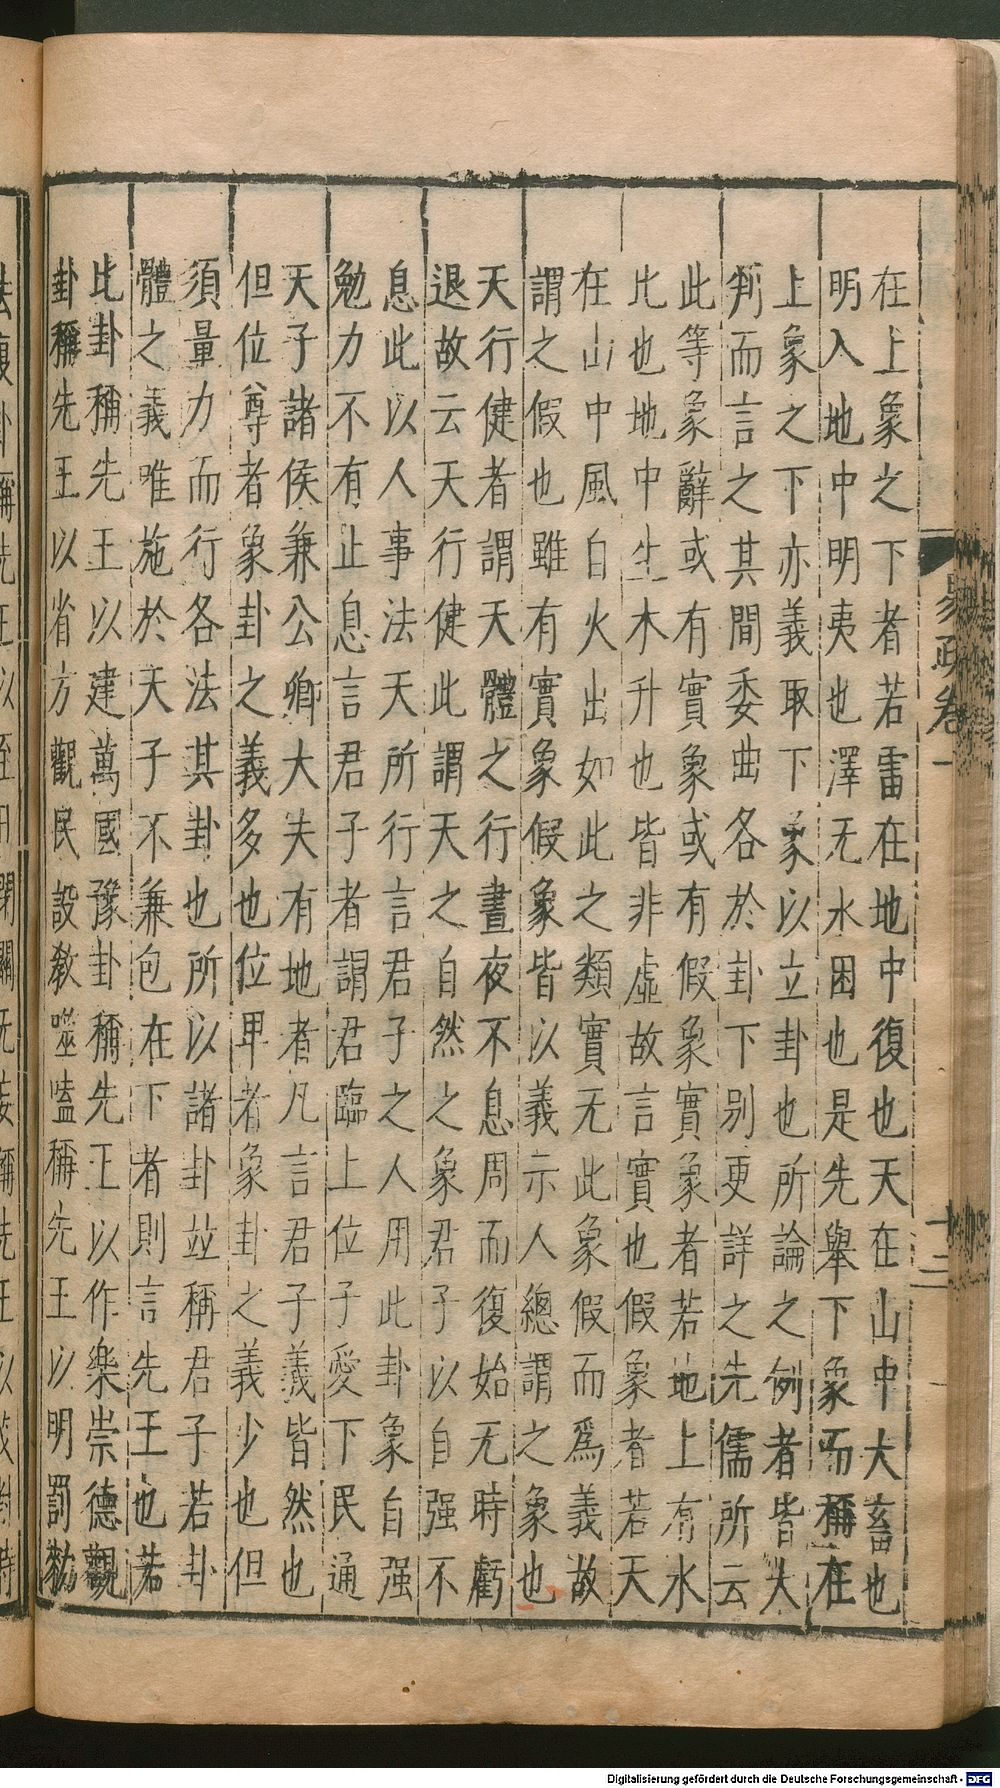 在上象之下者若雷在地中復也天在山中大畜也
明入地中明夷也澤无水困也是先舉下象而稱在
上象之下亦義取下象以立卦也所論之例者皆大
判而言之其間委曲各於卦下別更詳之先儒所云
此等象辭或有實象或有假象實象者若地上有水
比也地中生木升也皆非虛故言實也假象者若天
在山中風自火出如此之類實无此象假而爲義故
謂之假也雖有實象假象皆以義示人總謂之象也
天行健者謂天體之行晝夜不息周而復始无時虧
退故云天行健此謂天之自然之象君子以自强不
息此以人事法天所行言君子之人用此卦象自强
勉力不有止息言君子者謂君臨上位子愛下民通
天子諸侯兼公卿大夫有地者凡言君子義皆然也
但位尊者象卦之義多也位卑者象卦之義少也但
須量力而行各法其卦也所以諸卦竝稱君子若卦
體之義唯施於天子不兼包在下者則言先王也若
比卦稱先王以建萬國豫卦稱先王以作樂崇德觀
卦稱先王以省方觀民設敎噬嗑稱先王以明罰勑
法復卦稱先王以至日閉關无妄稱先王以茂對時
易政卷一
十二
Digitalisierung gefördert durch die Deutsche Forschungsgemeinschaft - DFG